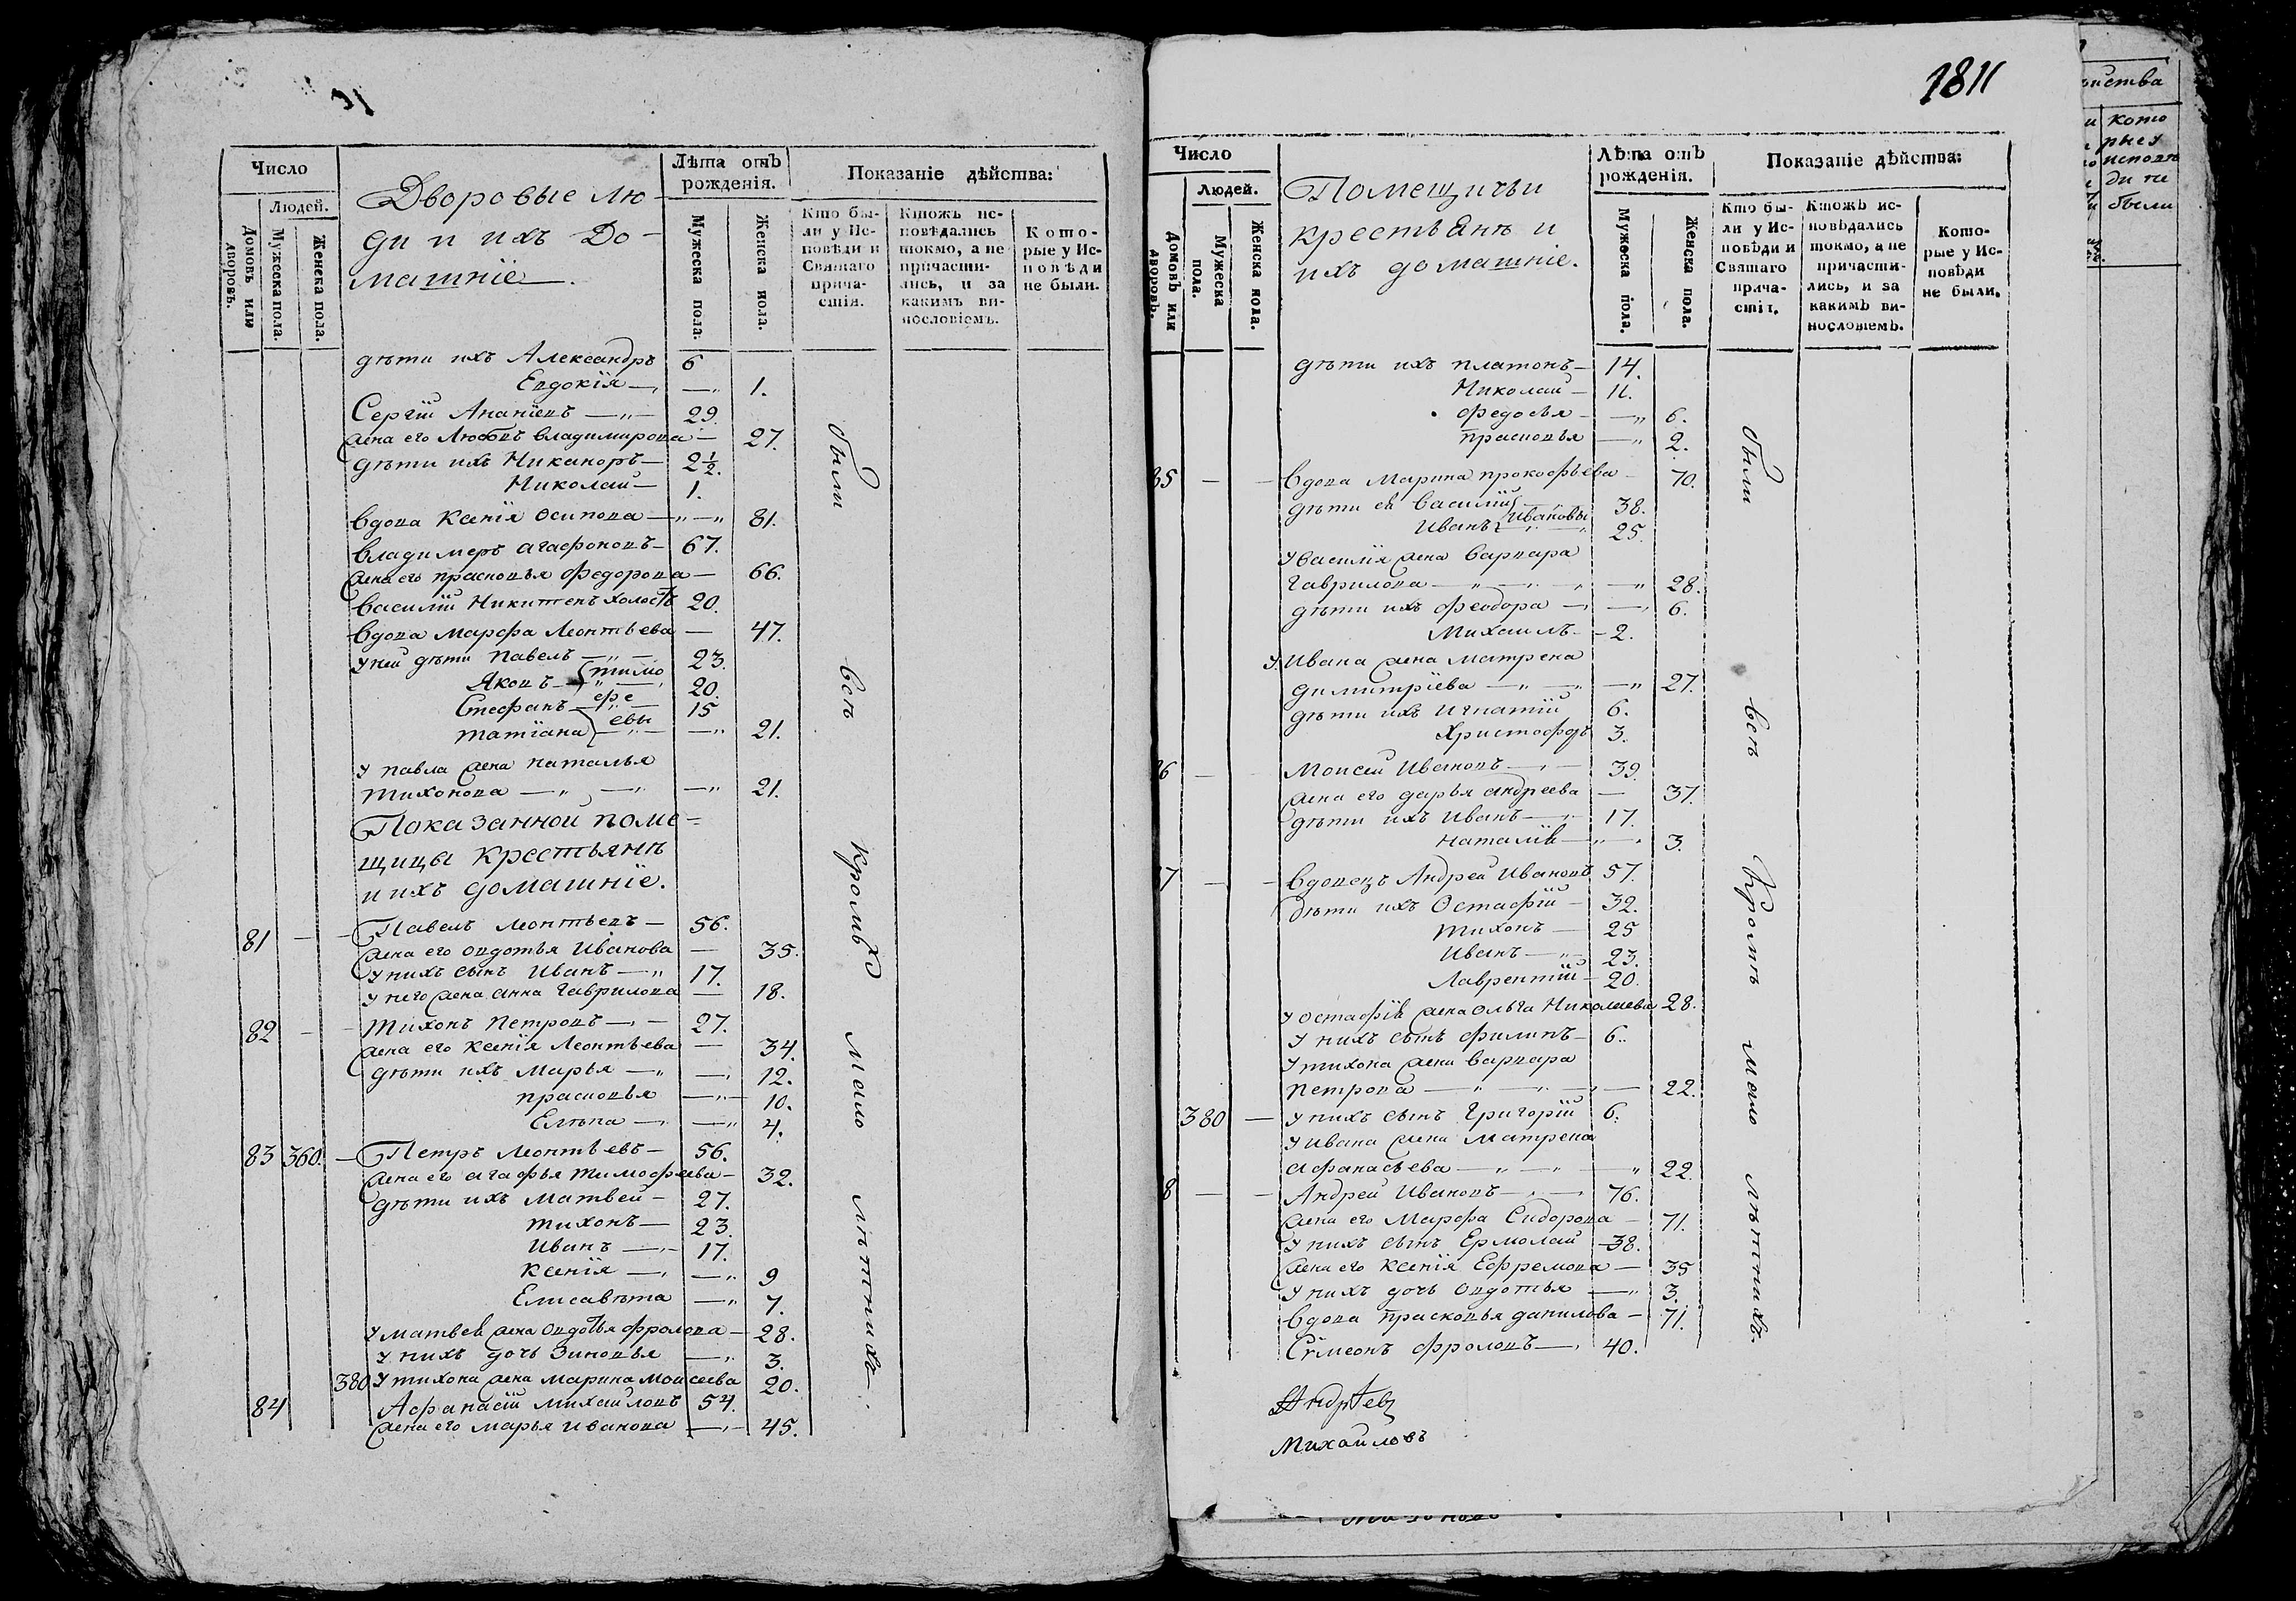 Число
Людей.
Домовъ или дворовъ.
Мужеска пола.
Женска пола.
Дворовые лю-
ди и ихъ до-
машніе.
Лѣта отъ рожденія.
Мужеска пола.
Женска пола.
Показаніе дѣйства:
Кто бы-
ли у Ис-
повѣди и
Святаго
прича-
стія.
Ктожъ ис-
повѣдались
токмо, а не
причасти-
лись, и за
какимъ ви-
нословіемъ.
Кото-
рые у Ис-
повѣди
не были.
дѣти ихъ Александръ 6
Евдокія — 1.
Сергій Ананіевъ — 29.
жена его Любовь Владимирова — 27.
дѣти ихъ Никаноръ — 2½.
Николай — 1.
вдова Ксенія Осипова — 81.
Владимеръ Агафоновъ — 67.
жена его Прасковья Федорова — 66.
Василій Никитенъ холостъ 20.
вдова Марфа Леонтьева — 47.
у ней дѣти Павелъ — 23.
Яковъ — тимо 20.
Стефанъ — фе 15
Татіана — евы — 21.
у Павла жена Наталья
Тихонова — 21.
Показанной поме-
щицы крестьянѣ
и ихъ домашніе.
81 — — Павелъ Леонтьевъ — 56.
жена его Овдотья Иванова — 35.
у нихъ сынъ Иванъ — 17.
у него жена Анна Гаврилова — 18.
82 — — Тихонъ Петровъ — 27.
жена его Ксенія Леонтьева — 34.
дѣти ихъ Марья — 12.
Прасковья — 10.
Елѣна — 4.
83 360. — Петръ Леонтьевъ — 56.
жена его Агафья Тимофеева — 32.
дѣти ихъ Матвей — 27.
Тихонъ — 23.
Иванъ — 17.
Ксенія — 9
Елисавѣта — 7.
у Матвея жена Овдотья Фролова — 28.
у нихъ дочь Зиновья — 3.
380 у Тихона жена Марина Моисеева 20.
84 Афанасій Михайловъ 54.
жена его Марья Иванова — 45.
были всѣ кромѣ мало лѣтнихъ
1811
Число
Людей.
Домовъ или дворовъ.
Мужеска пола.
Женска пола.
Помещичьи
крестьянѣ и
ихъ домашніе.
Лѣта отъ рожденія.
Мужеска пола.
Женска пола.
Показаніе дѣйства:
Кто бы-
ли у Ис-
повѣди и
Святаго
прича-
стія.
Ктожъ ис-
повѣдались
токмо, а не
причасти-
лись, и за
какимъ ви-
нословіемъ.
Кото-
рые у Ис-
повѣди
не были.
дѣти ихъ Платонъ — 14.
Николай — 11.
Федосья — 6.
Прасковья — 2.
85 — — вдова Марина Прокофьева — 70.
дѣти ея Василій 38.
Иванъ Ивановы 25.
у Василія жена Варвара
Гаврилова — 28.
дѣти ихъ Феодора — 6.
Михаилъ — 2.
у Ивана жена Матрена
Димитріева — 27.
дѣти ихъ Игнатій 6.
Христофоръ 3.
86 — Моисей Ивановъ — 39.
жена его Дарья Андреева — 37.
дѣти ихъ Иванъ — 17.
Наталія — 3.
87 — — вдовецъ Андрей Ивановъ 57.
дѣти ихъ Остафій — 32.
Тихонъ — 25
Иванъ — 23.
Лаврентій — 20.
у Остафія жена Ольга Николаева 28.
у нихъ сынъ Филипъ — 6.
у Тихона жена Варвара
Петрова — 22.
380 — у нихъ сынъ Григорій 6.
у Ивана жена Матрена
Афанасьева — 22.
8 — — Андрей Ивановъ — 76.
жена его Марфа Сидорова — 71.
у нихъ сынъ Ермолай — 38.
жена его Ксенія Ефремова — 35
у нихъ дочь Овдотья — 3.
вдова Прасковья Данилова — 71.
Симеонъ Фроловъ — 40.
были всѣ кромѣ мало лѣтнихъ.
Андреевъ
Михайловъ
кото
рые у
исповѣ
ди не
были